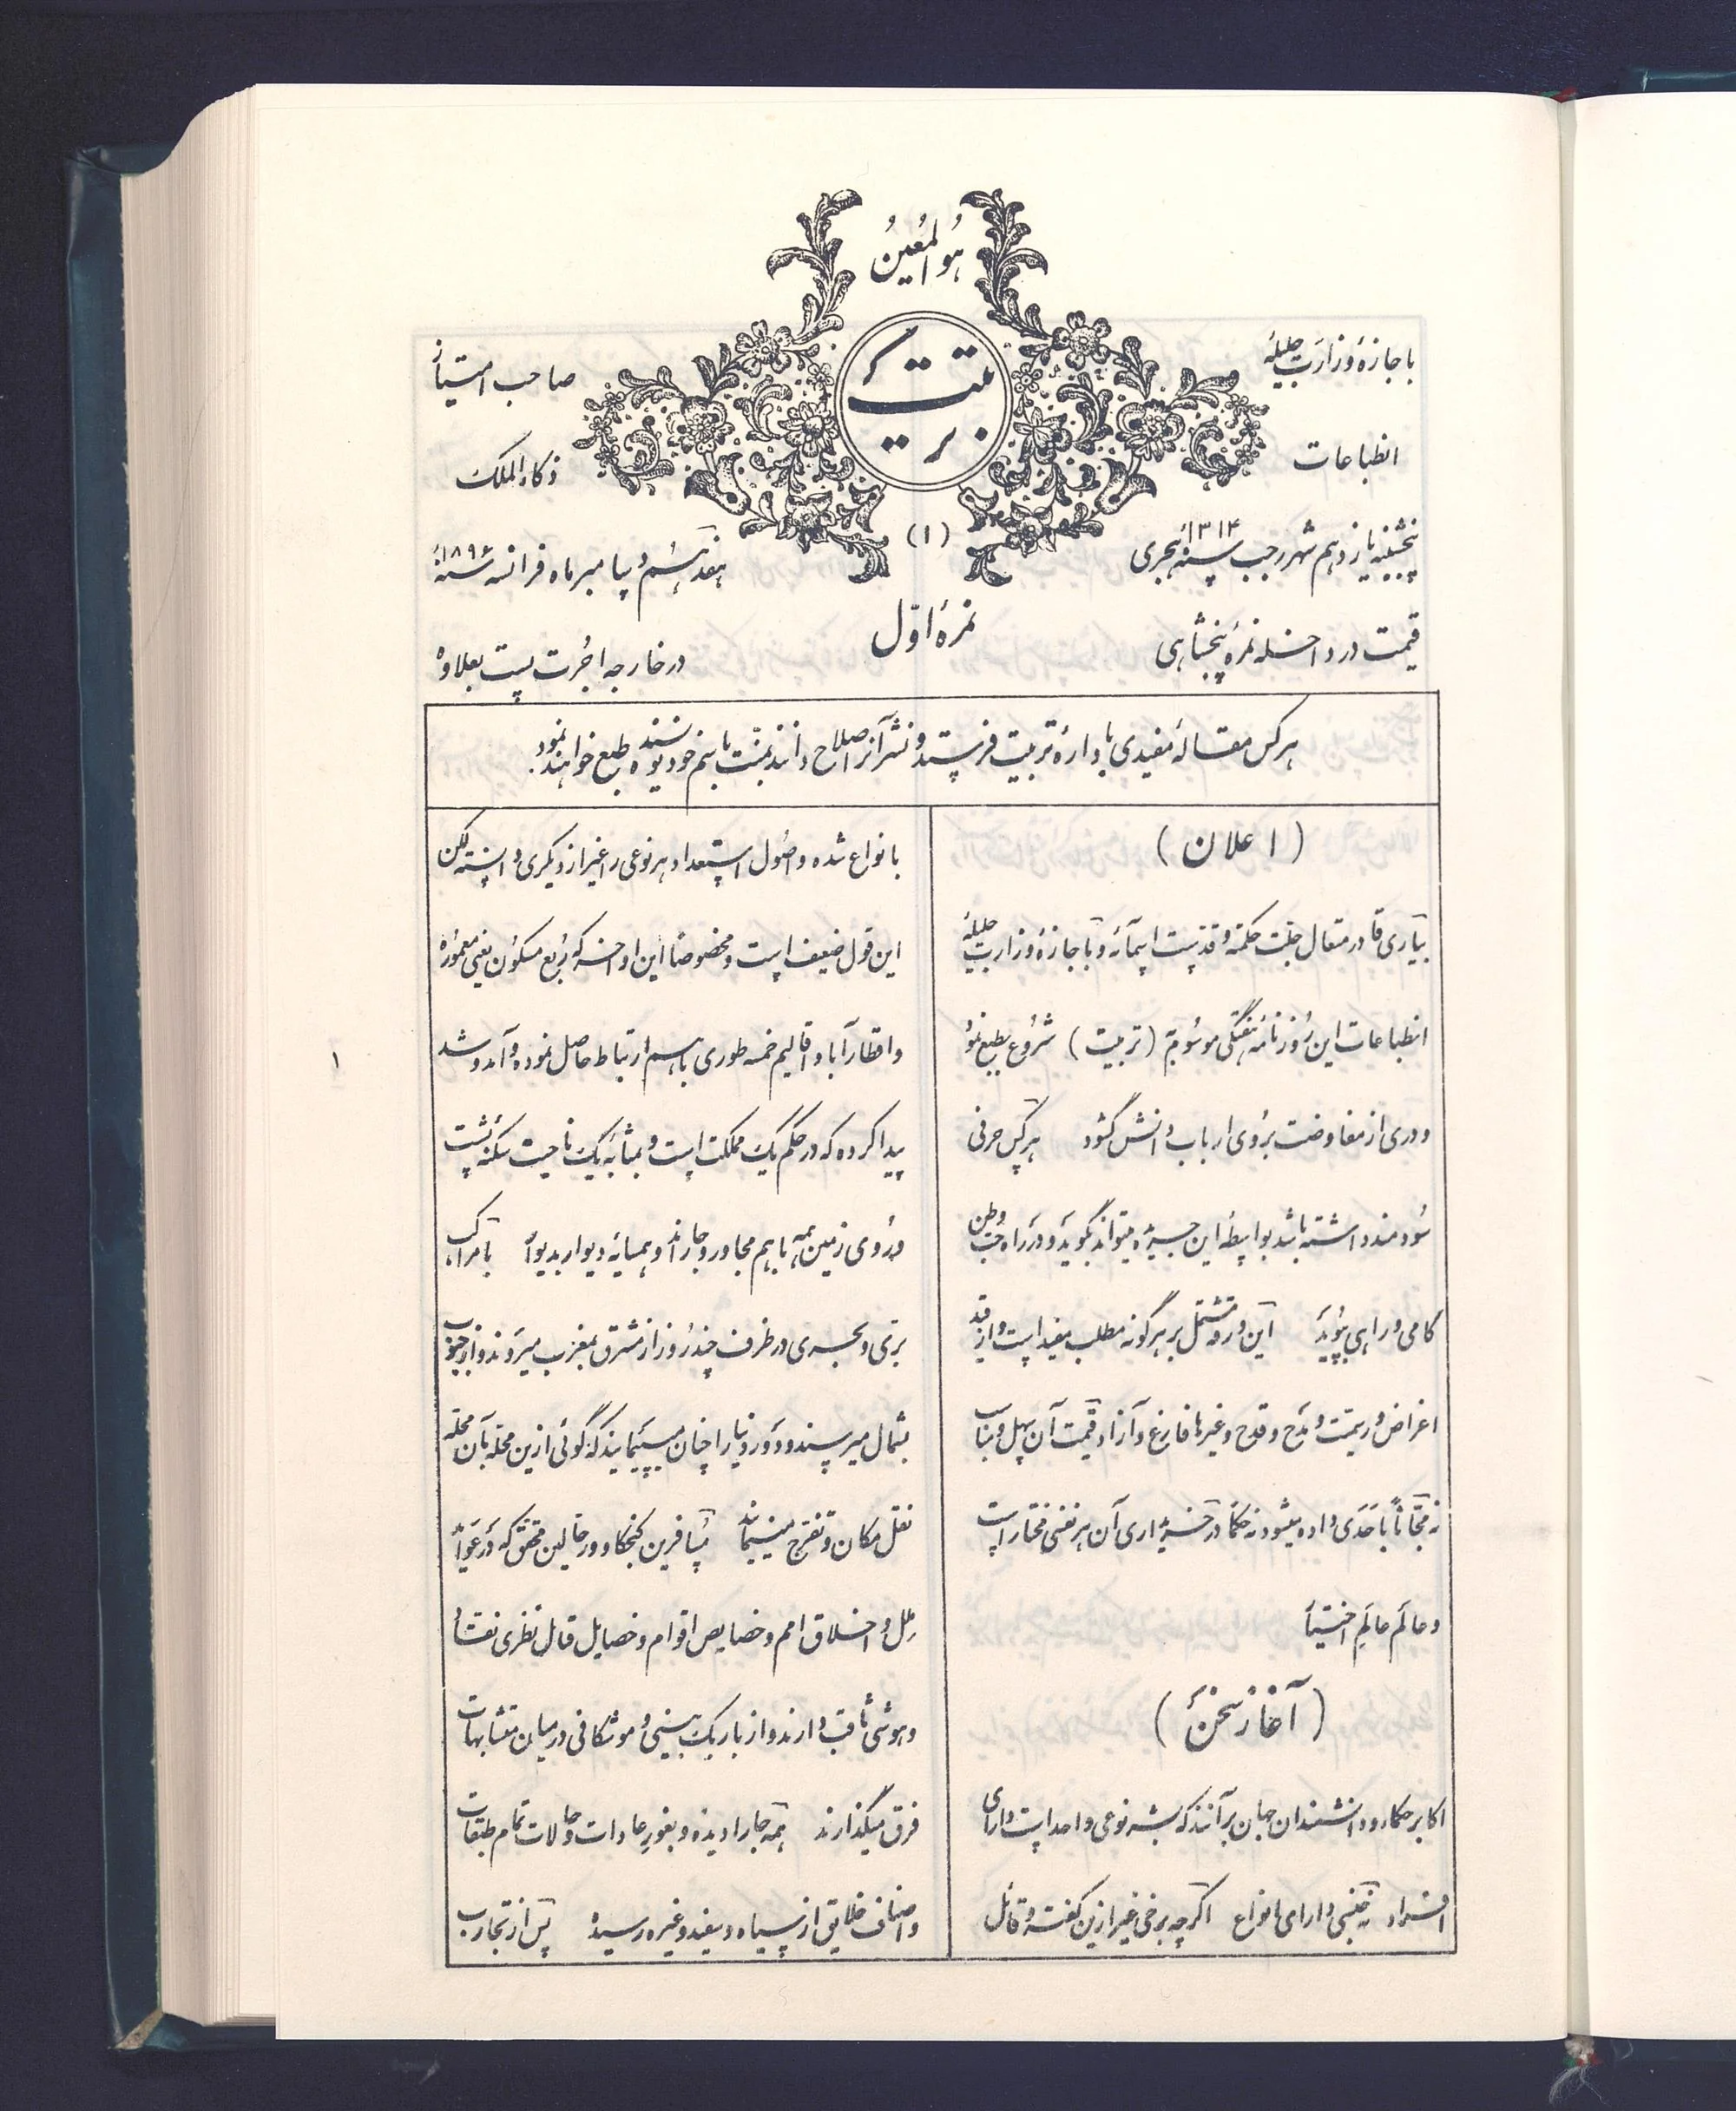 هو المعین
تربیت
باجازهٔ وزارت جلیلهٔ
انطباعات
صاحب امتیاز
ذکاء الملک
(۱)
پنجشنبه یازدهم شهر رجب سنهٔ ۱۳۱۴ هجری
هفدهم دسامبر ماه فرانسه سنهٔ ۱۸۹۶
نمرهٔ اول
قیمت در داخله نمرهٔ پنجشاهی
در خارجه اجرت پست بعلاوه
هر کس مقالهٔ مفیدی باداره تربیت فرستد و نشر آنرا صلاح دانند بمنت باسم خود نویسنده طبع خواهند نمود.
(اعلان)
بیاری قادر متعال جلت حکمته و تقدست اسمائه و باجازهٔ وزارت جلیلهٔ
انطباعات این روزنامهٔ هفتگی موسوم به (تربیت) شروع بطبع نمود
و دری از مفاوضت بروی ارباب دانش گشود هر کس حرفی
سودمند داشته باشد بواسطهٔ این جریده میتواند بگوید و در راه حب وطن
گامی و راهی بپوید این ورقه مشتمل بر هر گونه مطلب مفید است و از قید
اغراض و ریبت و مدح و قدح و غیرها فارغ و آزاد قیمت آن سهل و مناسب
نه مجاناً باحدی داده میشود نه حکماً در خریداری آن هر نفسی مختار است
و عالم عالم اختیار
(آغاز سخن)
اکابر حکما و دانشمندان جهان برآنند که بشر نوعی واحد است دارای
افراد نه جنسی دارای انواع اگر چه برخی غیر ازین گفته و قائل
بانواع شده و اصول استعداد هر نوعی را غیر از دیگری دانسته لکن
این قول ضعیف است و مخصوصا این اواخر که ربع مسکون یعنی معموره
و اقطار آباد اقالیم خمسه طوری باهم ارتباط حاصل نموده و آمد و شد
پیدا کرده که در حکم یک مملکت است و بمثابهٔ یک ناحیت سکنهٔ پشت
و روی زمین همه باهم مجاور و جارند و همسایهٔ دیوار بدیوار با مراکب
بری و بحری در ظرف چند روز از مشرق بمغرب میروند و از جنوب
بشمال میرسند و دور دنیا را چنان میپیمایند که گوئی ازین محله بآن محله
نقل مکان و تفرج مینمایند مسافرین کنجکاو و رحالین محقق که در عوائد
ملل و اخلاق امم و خصایص اقوام و خصایل قبائل نظری نقاد
و هوشی ثاقب دارند و از باریک بینی و موشکافی در میان متشابهات
فرق میگذارند همه جا را دیده و بغور عادات و حالات تمام طبقات
و اصناف خلایق از سیاه و سفید و غیره رسیده پس از تجارب
۱